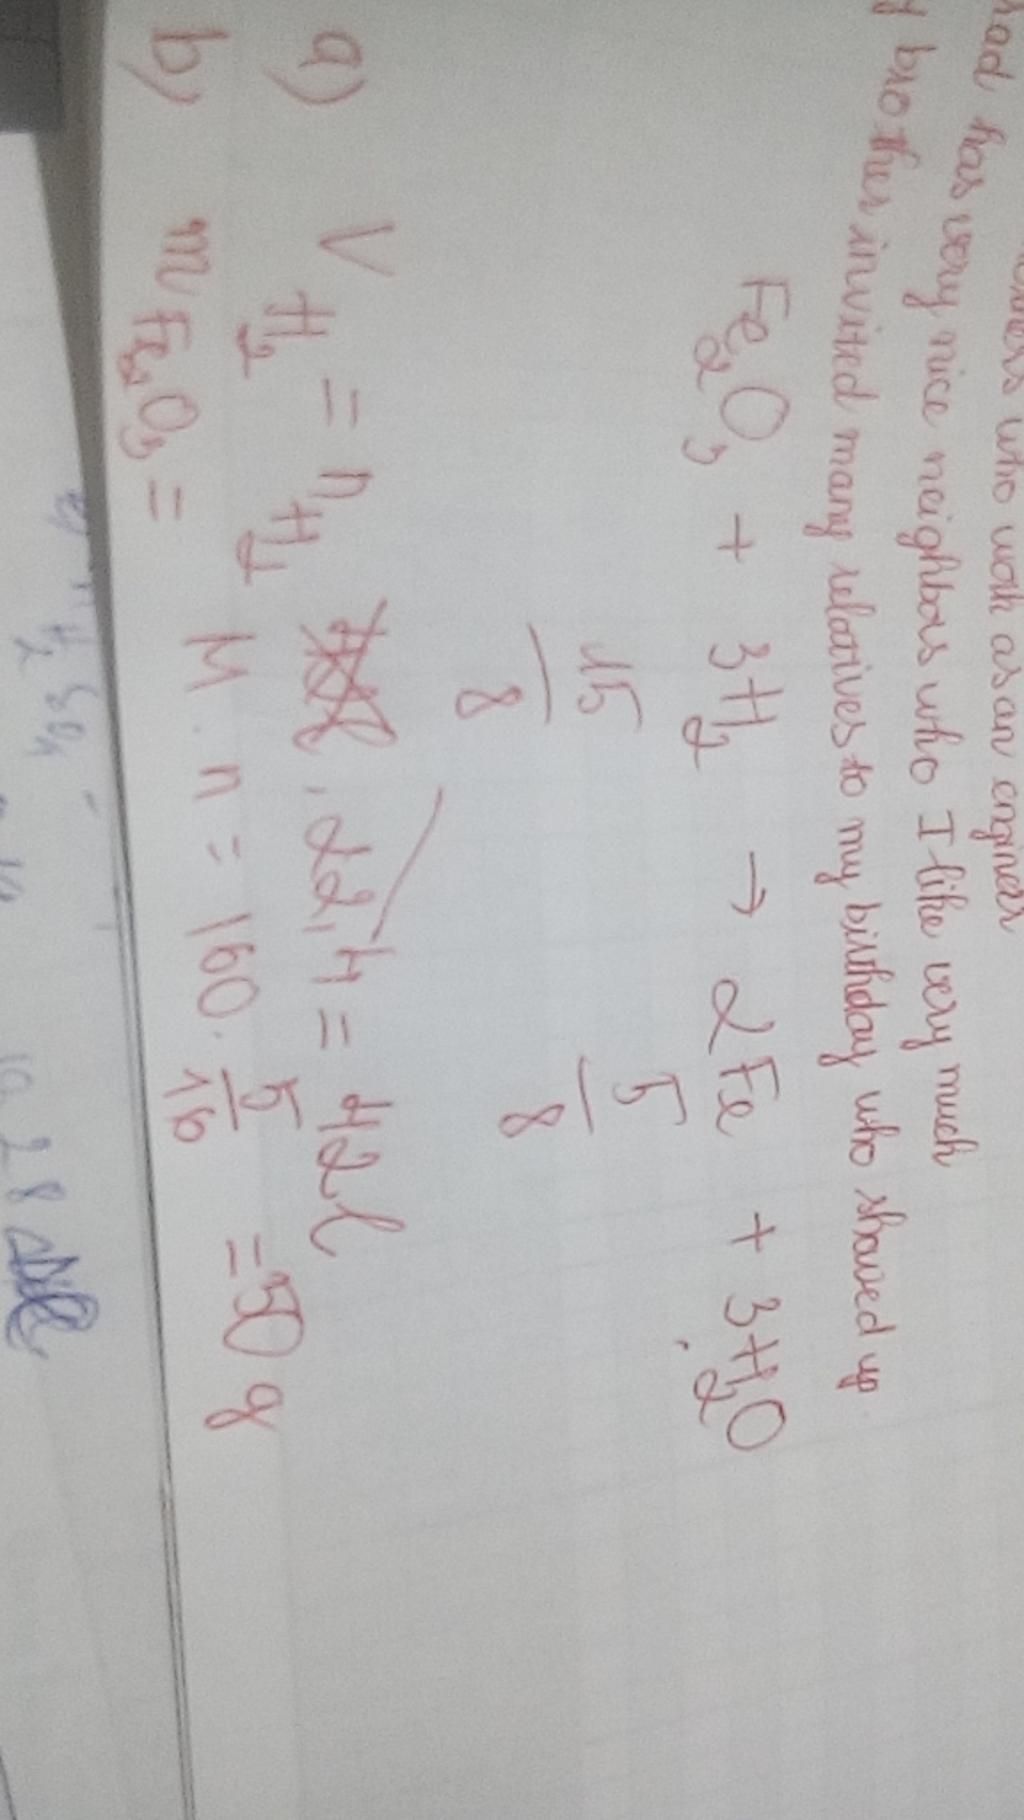 who work as an engineer
has very nice neighbors who I like very much
brother invited many relatives to my birthday who showed up
Fe2O3 + 3H2 → 2Fe + 3H2O
15/8 5/8
a) V H2 = n H2 . 22,4 = 42l
b) m Fe2O3 = M . n = 160 . 5/16 = 50 g